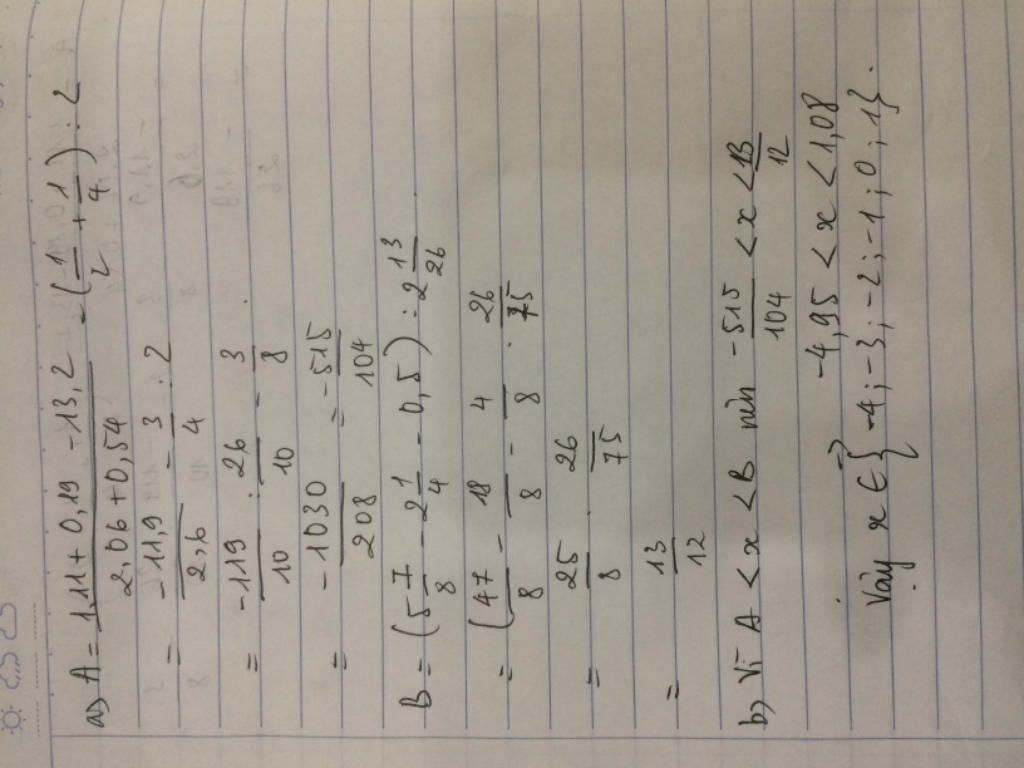 a) A = \frac{1,11 + 0,19 - 13,2}{2,06 + 0,54} - (\frac{1}{2} + \frac{1}{4}) : 2
= \frac{-11,9}{2,6} - \frac{3}{4} : 2
= \frac{-119}{10} : \frac{26}{10} - \frac{3}{8}
= \frac{-1030}{208} = \frac{-515}{104}
B = (5\frac{7}{8} - 2\frac{1}{4} - 0,5) : 2\frac{13}{26}
= (\frac{47}{8} - \frac{18}{8} - \frac{4}{8} . \frac{26}{75}
= \frac{25}{8} . \frac{26}{75}
= \frac{13}{12}
b) Vì A < x < B nên \frac{-515}{104} < x < \frac{13}{12}
=> -4,95 < x < 1,08
Vậy x ∈ { -4 ; -3 ; -2 ; -1 ; 0 ; 1}.